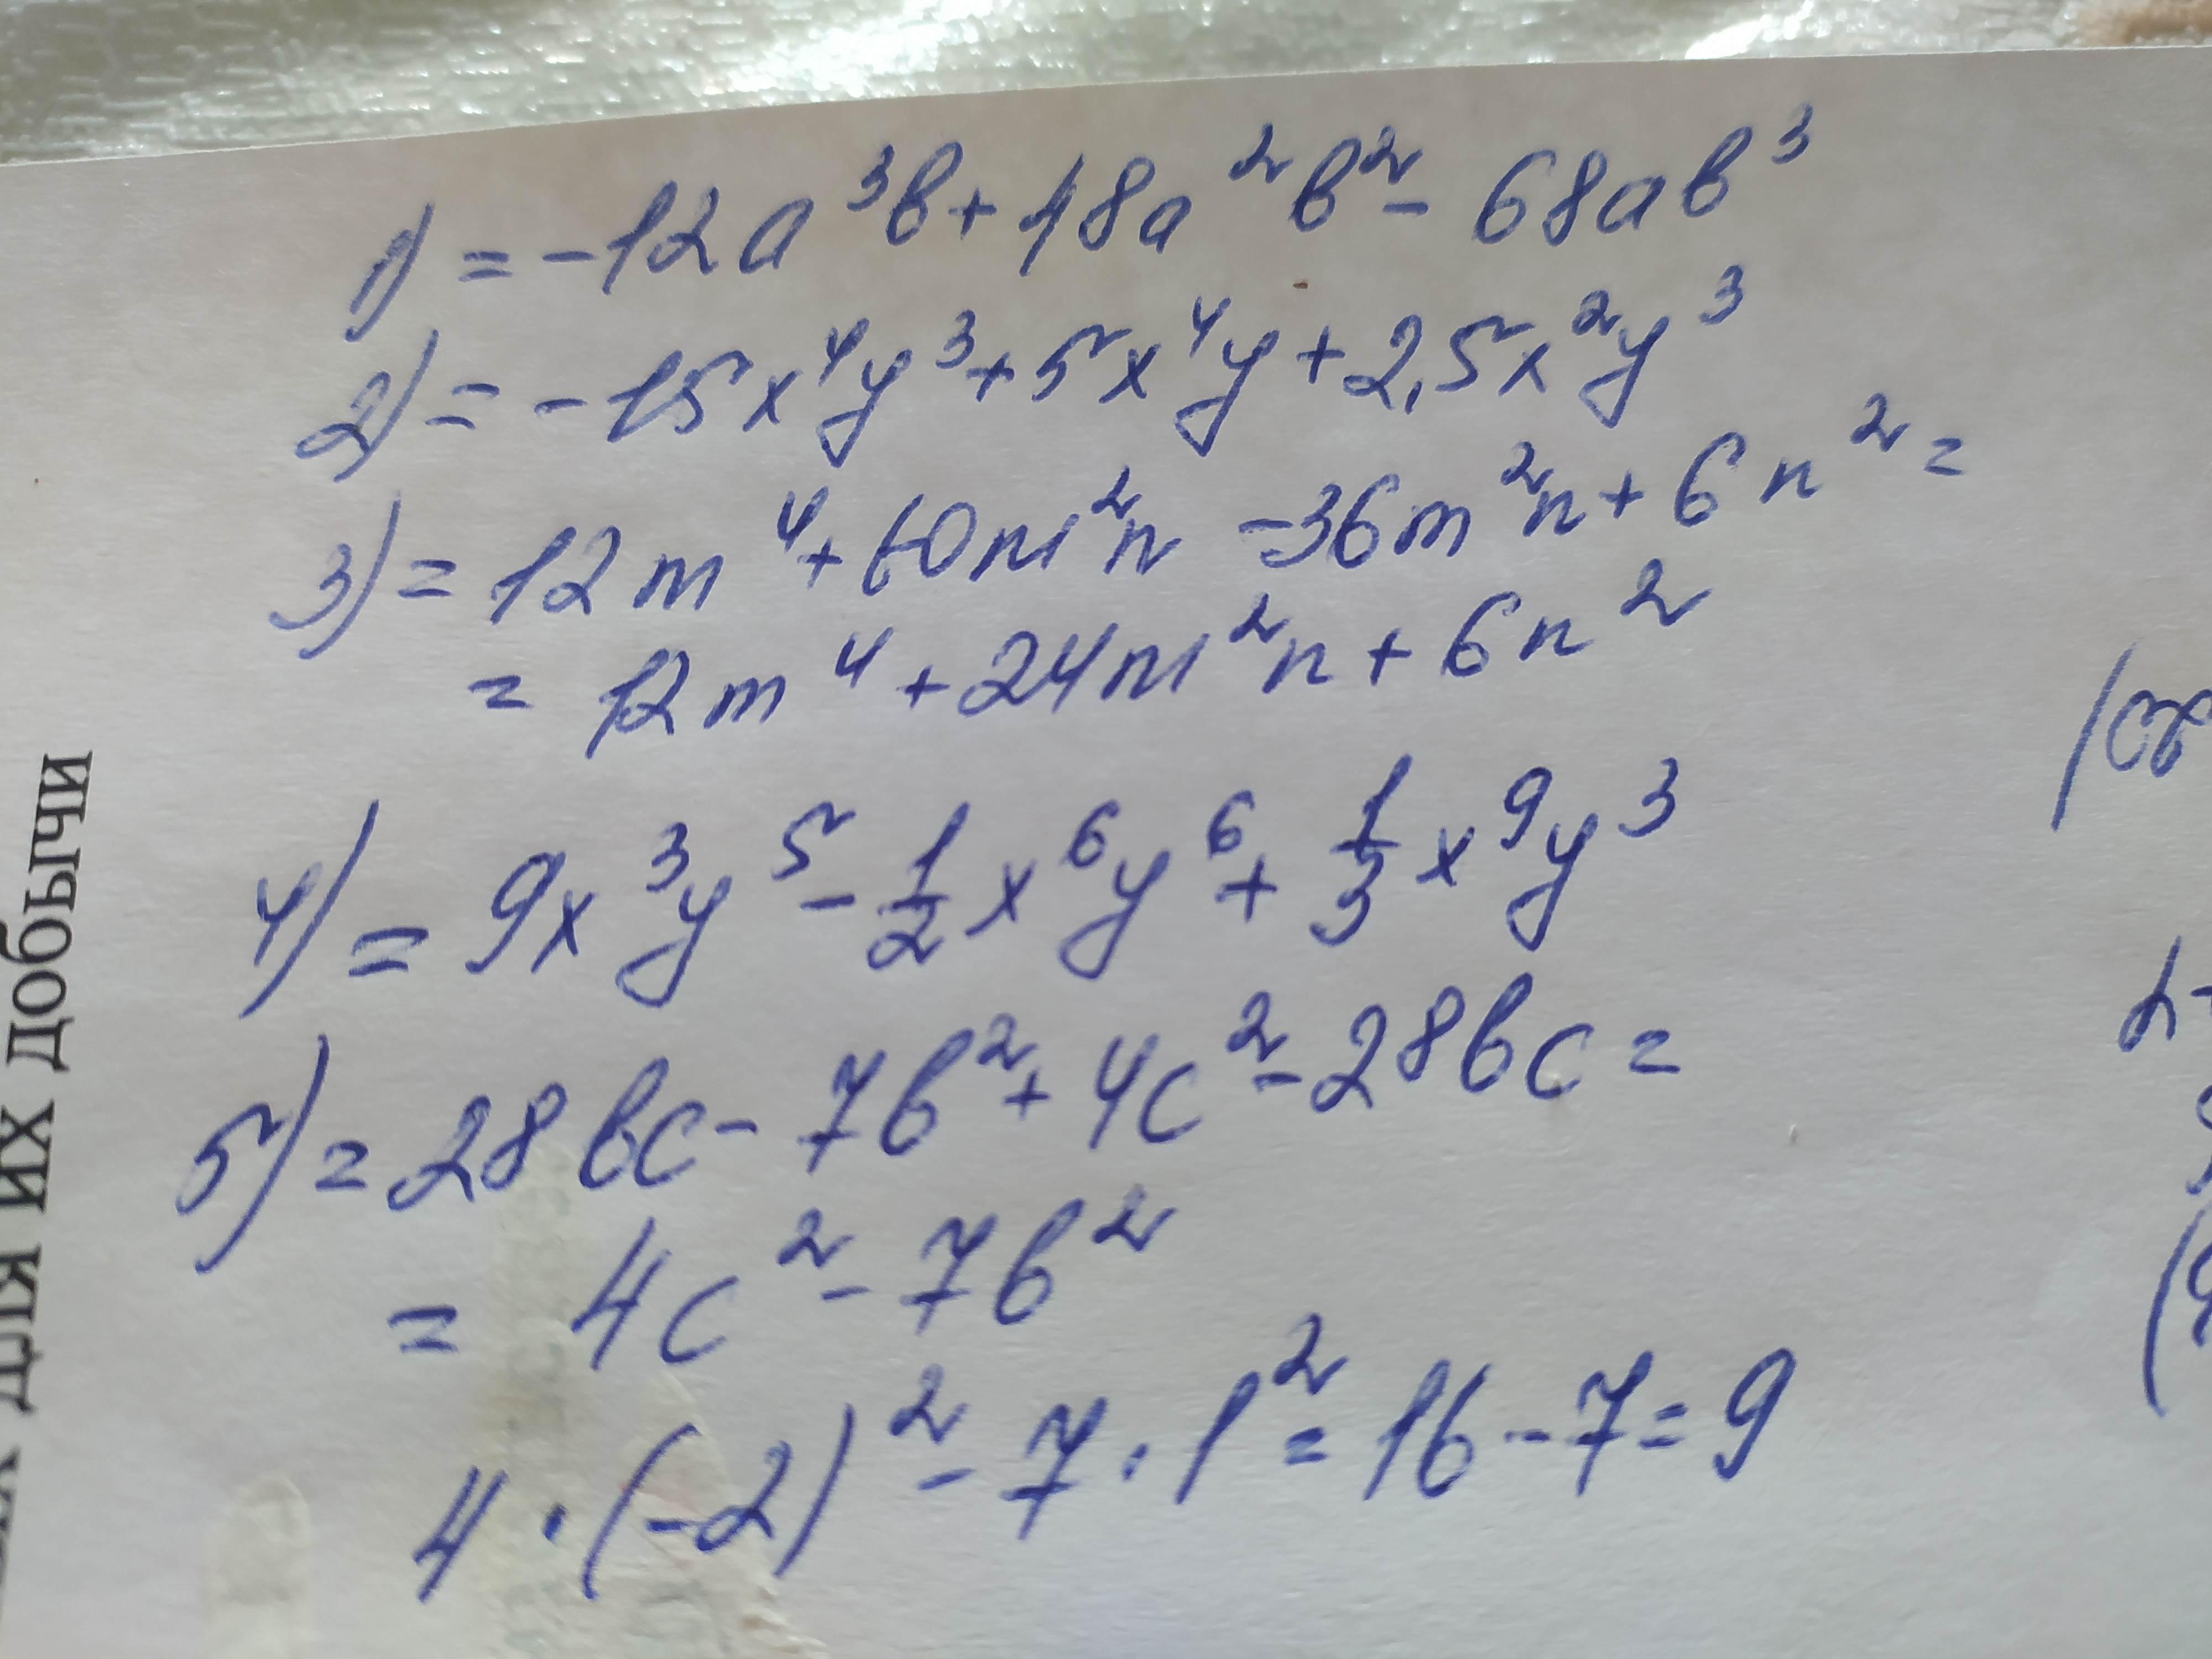 1) = -12a³b + 48a²b² - 68ab³
2) = -15x⁴y³ + 5x⁴y + 2,5x²y³
3) = 12m⁴ + 60m²n - 36m²n + 6n² =
= 12m⁴ + 24m²n + 6n²
4) = 9x³y⁵ - 1/2 x⁶y⁶ + 1/3 x⁹y³
5) = 28bc - 7b² + 4c² - 28bc =
= 4c² - 7b²
4 · (-2)² - 7 · 1² = 16 - 7 = 9
для их добычи